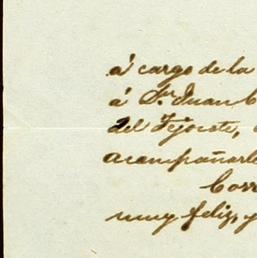 á cargo de la
á Sr. Juan C
del Tejocote,
acompañarle
Corr
muy feliz, y